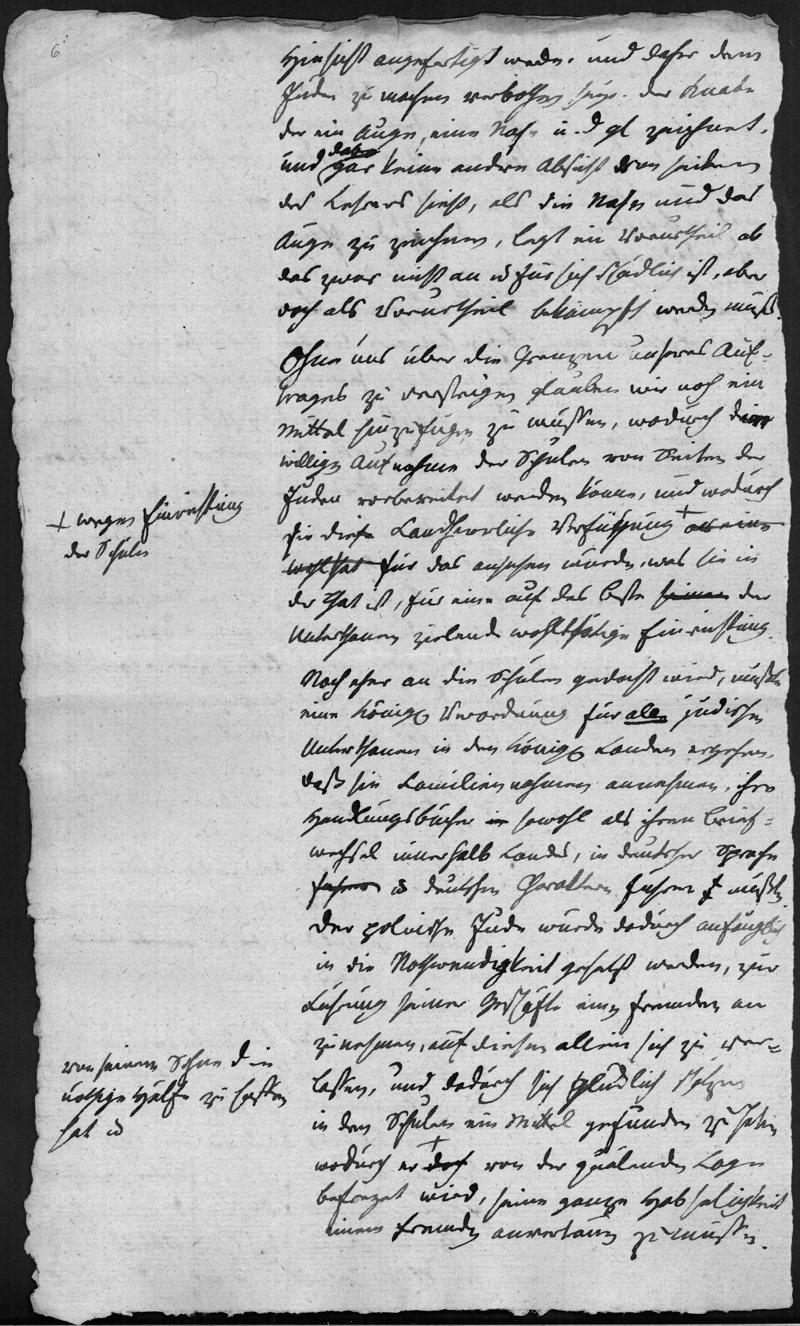 6.
Hinsicht angefertigt werde, und daher dem
Juden zu machen verbothen sey. Der Knabe
der ein Auge, eine Nase u. d gl zeichnet,
und dabey gar keine andere Absicht von seiten
des Lehrers sieht, als die Nase und das
Auge zu zeichnen, legt ein Vorurtheil ab
das zwar nicht an u für sich schädlich ist, aber
doch als Vorurtheil bekämpft werden muß.
Ohne uns über die Grenzen unseres Auf-
trages zu versteigen glauben wir noch ein
Mittel hinzufügen zu müssen, wodurch die
willige Aufnahme der Schulen von Seiten der
Juden vorbereitet werden könne, und wodurch
sie diese Landherrliche Verfügung + als eine
+ wegen Einrichtung
der Schulen
wohlthat für das ansehen würde, was sie in
der That ist, für eine auf das beste seiner der
Unterthanen zielende wohlthätige Einrichtung.
Noch eher an die Schulen gedacht wird, müßte
eine Königl Verordnung für alle jüdischen
Unterthanen in den Königl Landen ergehen,
daß sie Familiennahmen annehmen, ihre
Handlungsbücher sowohl als ihren Brief-
wechsel innerhalb Landes, in deutscher Sprache
führen u deutschen Charaktern führen müßten.
Der polnische Jude würde dadurch anfänglich
in die Nothwendigkeit gesetzt werden, zur
Führung seiner Geschäfte einen Fremden an
zunehmen, auf diesen allein sich zu ver-
lassen, und dadurch sich glücklich schätzen
in den Schulen ein Mittel gefunden zu haben
wodurch er + doch von der quälenden Lage
von seinem Sohne die
nöthige Hülfe zu hoffen
hat u
befreyet wird, seine ganze Habseligkeit
einem Fremden anvertrauen zu müssen.